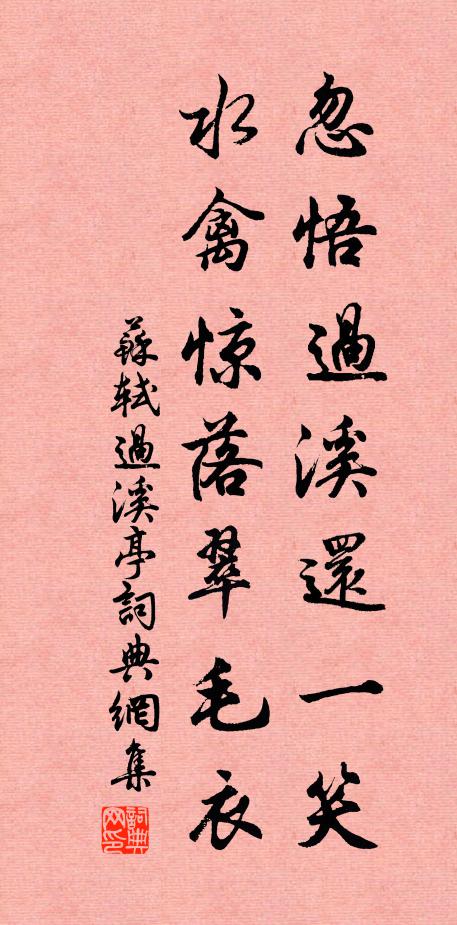 忽悟過溪還一笑
水禽惊落翠毛衣
蘇軾過溪亭詞典網集
詞典网印